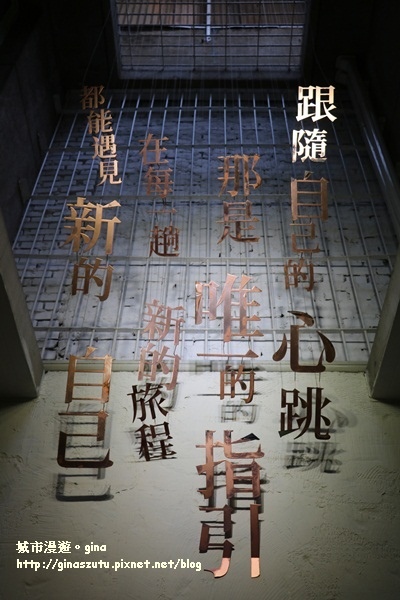 跟隨自己的心跳
那是唯一的指引
在每一趟新的旅程
都能遇見新的自己
城市漫遊。gina
http://ginaszutu.pixnet.net/blog